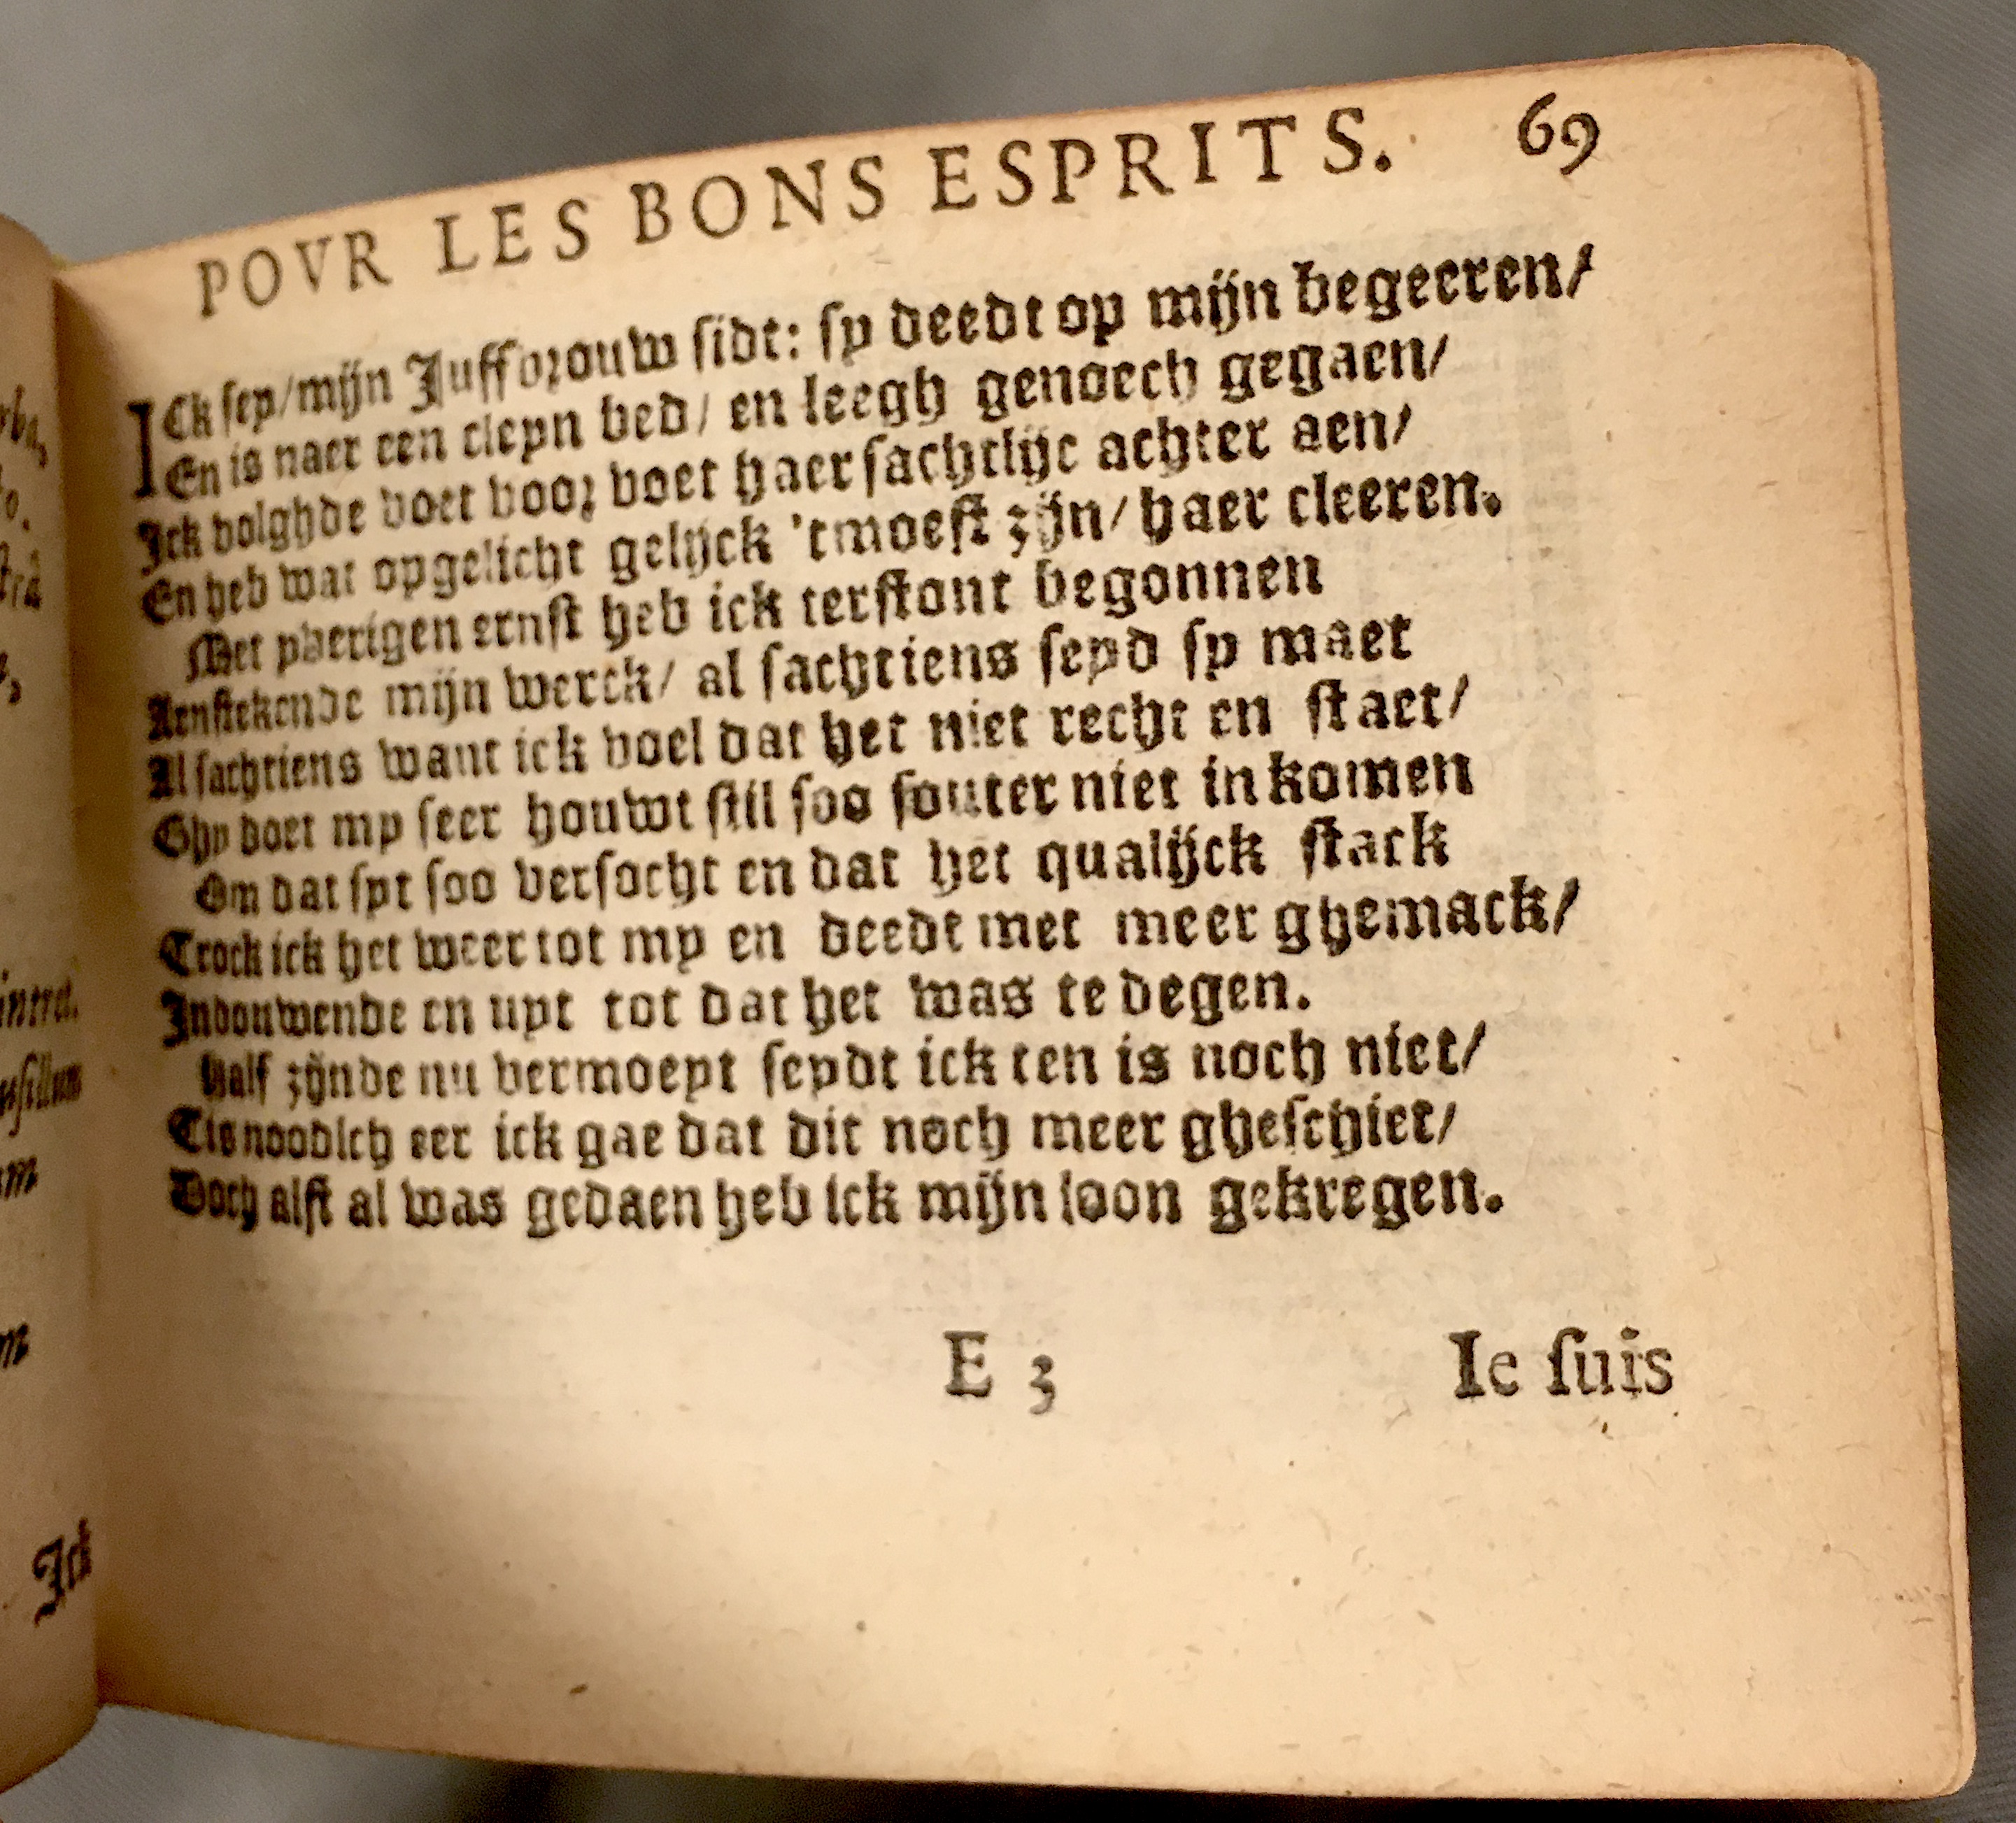 POVR LES BONS ESPRITS. 69
ICk sey/mijn Juffvrouw sidt: sy deedt op mijn begeeren/
En is naer een cleyn bed/ en leegh genoech gegaen/
Ick volghde voet voor voet haer sachtlijc achter aen/
En heb wat opgelicht gelijck 'tmoest zijn/ haer cleeren.
Met yverigen ernst heb ick terstont begonnen
Aenstekende mijn werck/ al sachtiens seyd sy maet
Al sachtiens want ick voel dat het niet recht en staet/
Ghy doet my seer houwt stil soo souter niet in komen
Om dat syt soo versocht en dat het qualijck stack
Trock ick het weer tot my en deedt met meer ghemack/
Indouwende en uyt tot dat het was te degen.
Half zijnde nu vermoeyt seydt ick ten is noch niet/
Tis noodich eer ick gae dat dit noch meer gheschiet/
Doch alst al was gedaen heb ick mijn loon gekregen.
E 3 Ie ſuis
Ick